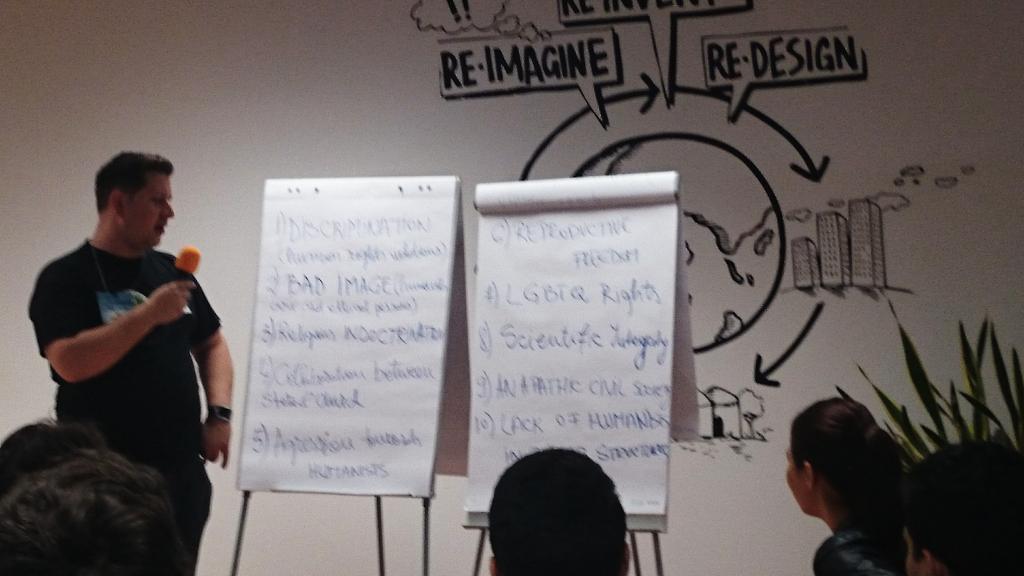 !!
RE·IMAGINE
RE·DESIGN
1) DISCRIMINATION
(human rights violations)
2) BAD IMAGE (humanists
3) Religious INDOCTRINATION
4) Collaboration between
State/Church
5) Agression towards
HUMANISTS
6) REPRODUCTIVE
FREEDOM
7) LGBTQ Rights
8) Scientific Integrity
9) AN APATHIC CIVIL SOCIETY
10) LACK OF HUMANISTS
STRUCTURES